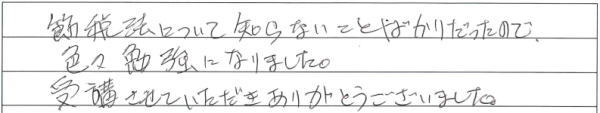 節税法について知らないことばかりだったので、
色々勉強になりました。
受講させていただきありがとうございました。